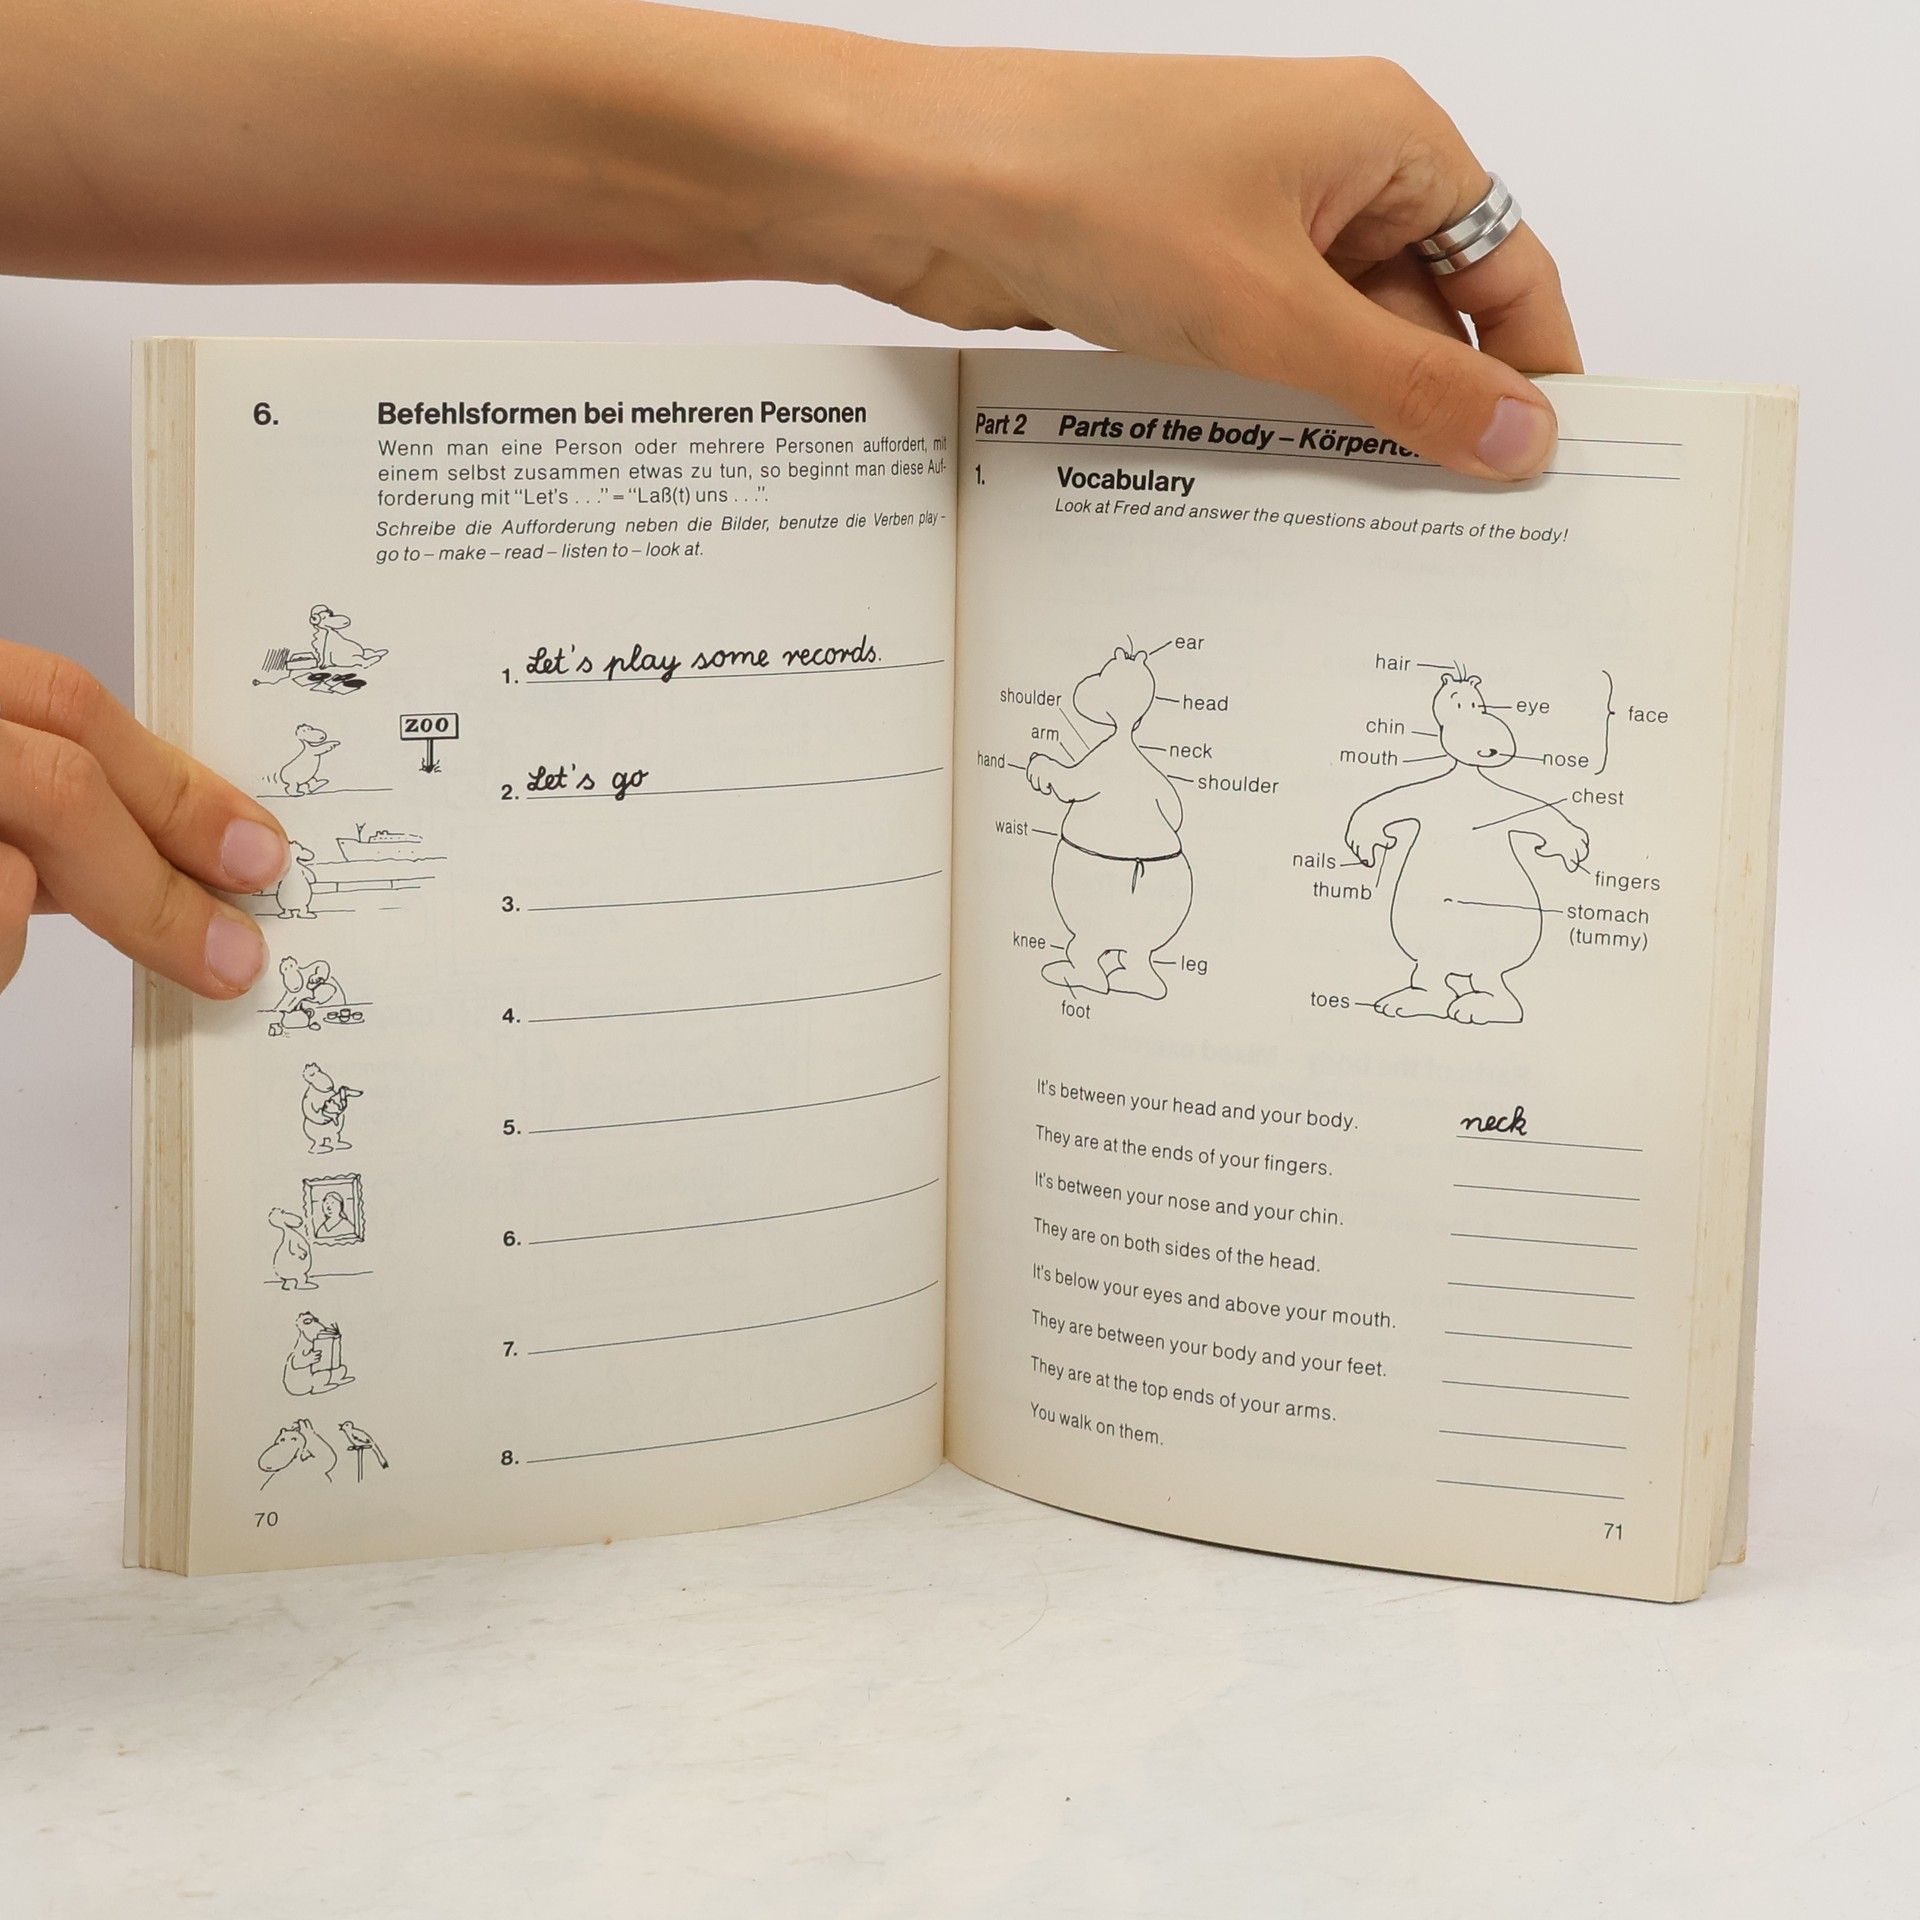 6. Befehlsformen bei mehreren Personen
Wenn man eine Person oder mehrere Personen auffordert, mit
einem selbst zusammen etwas zu tun, so beginnt man diese Auf-
forderung mit “Let's . . .” = “Laß(t) uns . . .”.
Schreibe die Aufforderung neben die Bilder, benutze die Verben play –
go to – make – read – listen to – look at.
1. Let's play some records.
ZOO
2. Let's go
3.
4.
5.
6.
7.
8.
70
Part 2 Parts of the body –
1. Vocabulary
Look at Fred and answer the questions about parts of the body!
ear
shoulder
head
arm
neck
hand
shoulder
waist
knee
leg
foot
hair
eye
face
chin
mouth
nose
chest
nails
fingers
thumb
stomach
(tummy)
toes
It's between your head and your body. neck
They are at the ends of your fingers.
It's between your nose and your chin.
They are on both sides of the head.
It's below your eyes and above your mouth.
They are between your body and your feet.
They are at the top ends of your arms.
You walk on them.
71